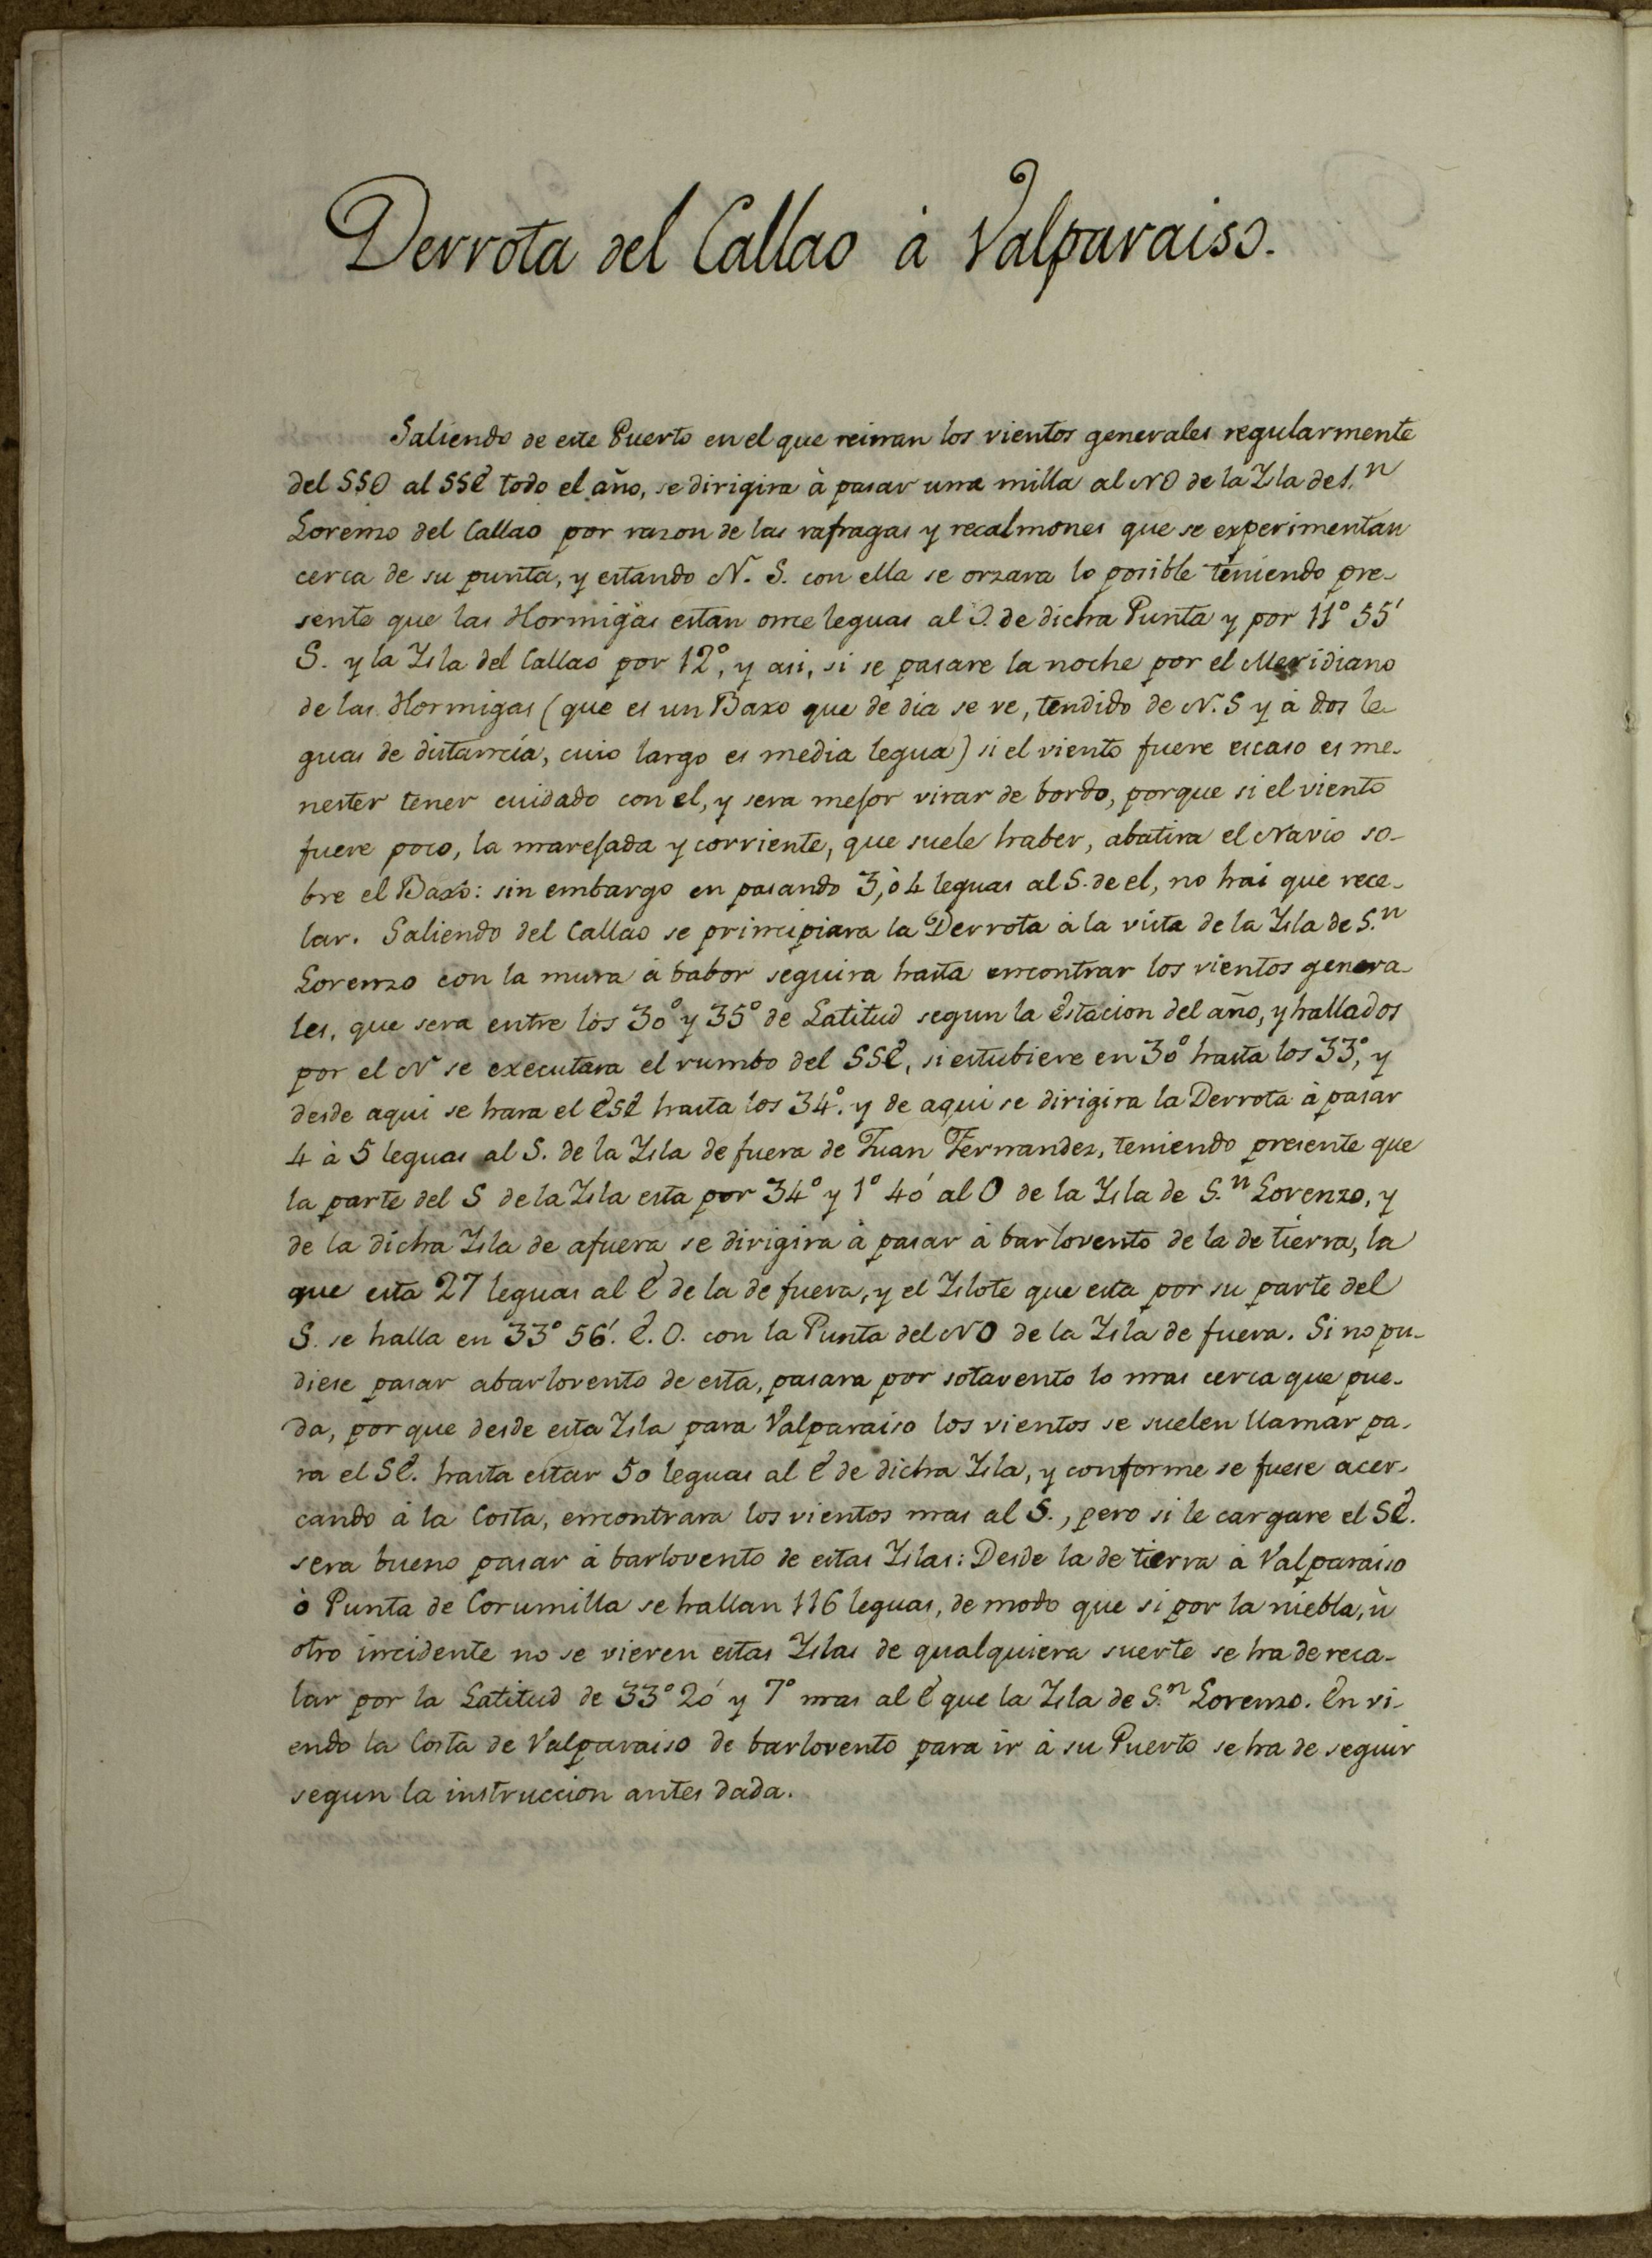 Derrota del Callao à Valparaiso.
Saliendo de este Puerto en el que reinan los vientos generales regularmente
del SSO al SSE todo el año, se dirigira à pasar una milla al NO de la Isla de S.n
Lorenzo del Callao por razon de las rafragas y recalmones que se experimentan
cerca de su punta, y estando N. S. con ella se orzara lo posible teniendo pre-
sente que las Hormigas estan once leguas al O. de dicha Punta y por 11° 55'
S. y la Isla del Callao por 12°, y asi, si se pasare la noche por el Meridiano
de las Hormigas (que es un Baxo que de dia se ve, tendido de N. S y à dos le-
guas de distancia, cuio largo es media legua) si el viento fuere escaso es me-
nester tener cuidado con el, y sera mejor virar de bordo, porque si el viento
fuere poco, la marejada y corriente, que suele haber, abatira el Navio so-
bre el Baxo: sin embargo en pasando 3, ò 4 leguas al S. de el, no hai que rece-
lar. Saliendo del Callao se principiara la Derrota à la vista de la Isla de S.n
Lorenzo con la mura à babor seguira hasta encontrar los vientos genera-
les, que sera entre los 30° y 35° de Latitud segun la Estacion del año, y hallados
por el N se executara el rumbo del SSE, si estubiere en 30° hasta los 33°, y
desde aqui se hara el ESE hasta los 34°. y de aqui se dirigira la Derrota à pasar
4 à 5 leguas al S. de la Isla de fuera de Juan Fernandez, teniendo presente que
la parte del S de la Isla esta por 34° y 1° 40' al O de la Isla de S.n Lorenzo, y
de la dicha Isla de afuera se dirigira à pasar à barlovento de la de tierra, la
que esta 27 leguas al E de la de fuera, y el Islote que esta por su parte del
S. se halla en 33° 56'. E. O. con la Punta del NO de la Isla de fuera. Si no pu-
diese pasar abarlovento de esta, pasara por sotavento lo mas cerca que pue-
da, por que desde esta Isla para Valparaiso los vientos se suelen llamar pa-
ra el SE. hasta estar 50 leguas al E de dicha Isla, y conforme se fuese acer-
cando à la Costa, encontrara los vientos mas al S., pero si le cargare el SE.
sera bueno pasar à barlovento de estas Islas: Desde la de tierra à Valparaiso
ò Punta de Corumilla se hallan 116 leguas, de modo que si por la niebla, ù
otro incidente no se vieren estas Islas de qualquiera suerte se ha de reca-
lar por la Latitud de 33° 20' y 7° mas al E que la Isla de S.n Lorenzo. En vi-
endo la Costa de Valparaiso de barlovento para ir à su Puerto se ha de seguir
segun la instruccion antes dada.